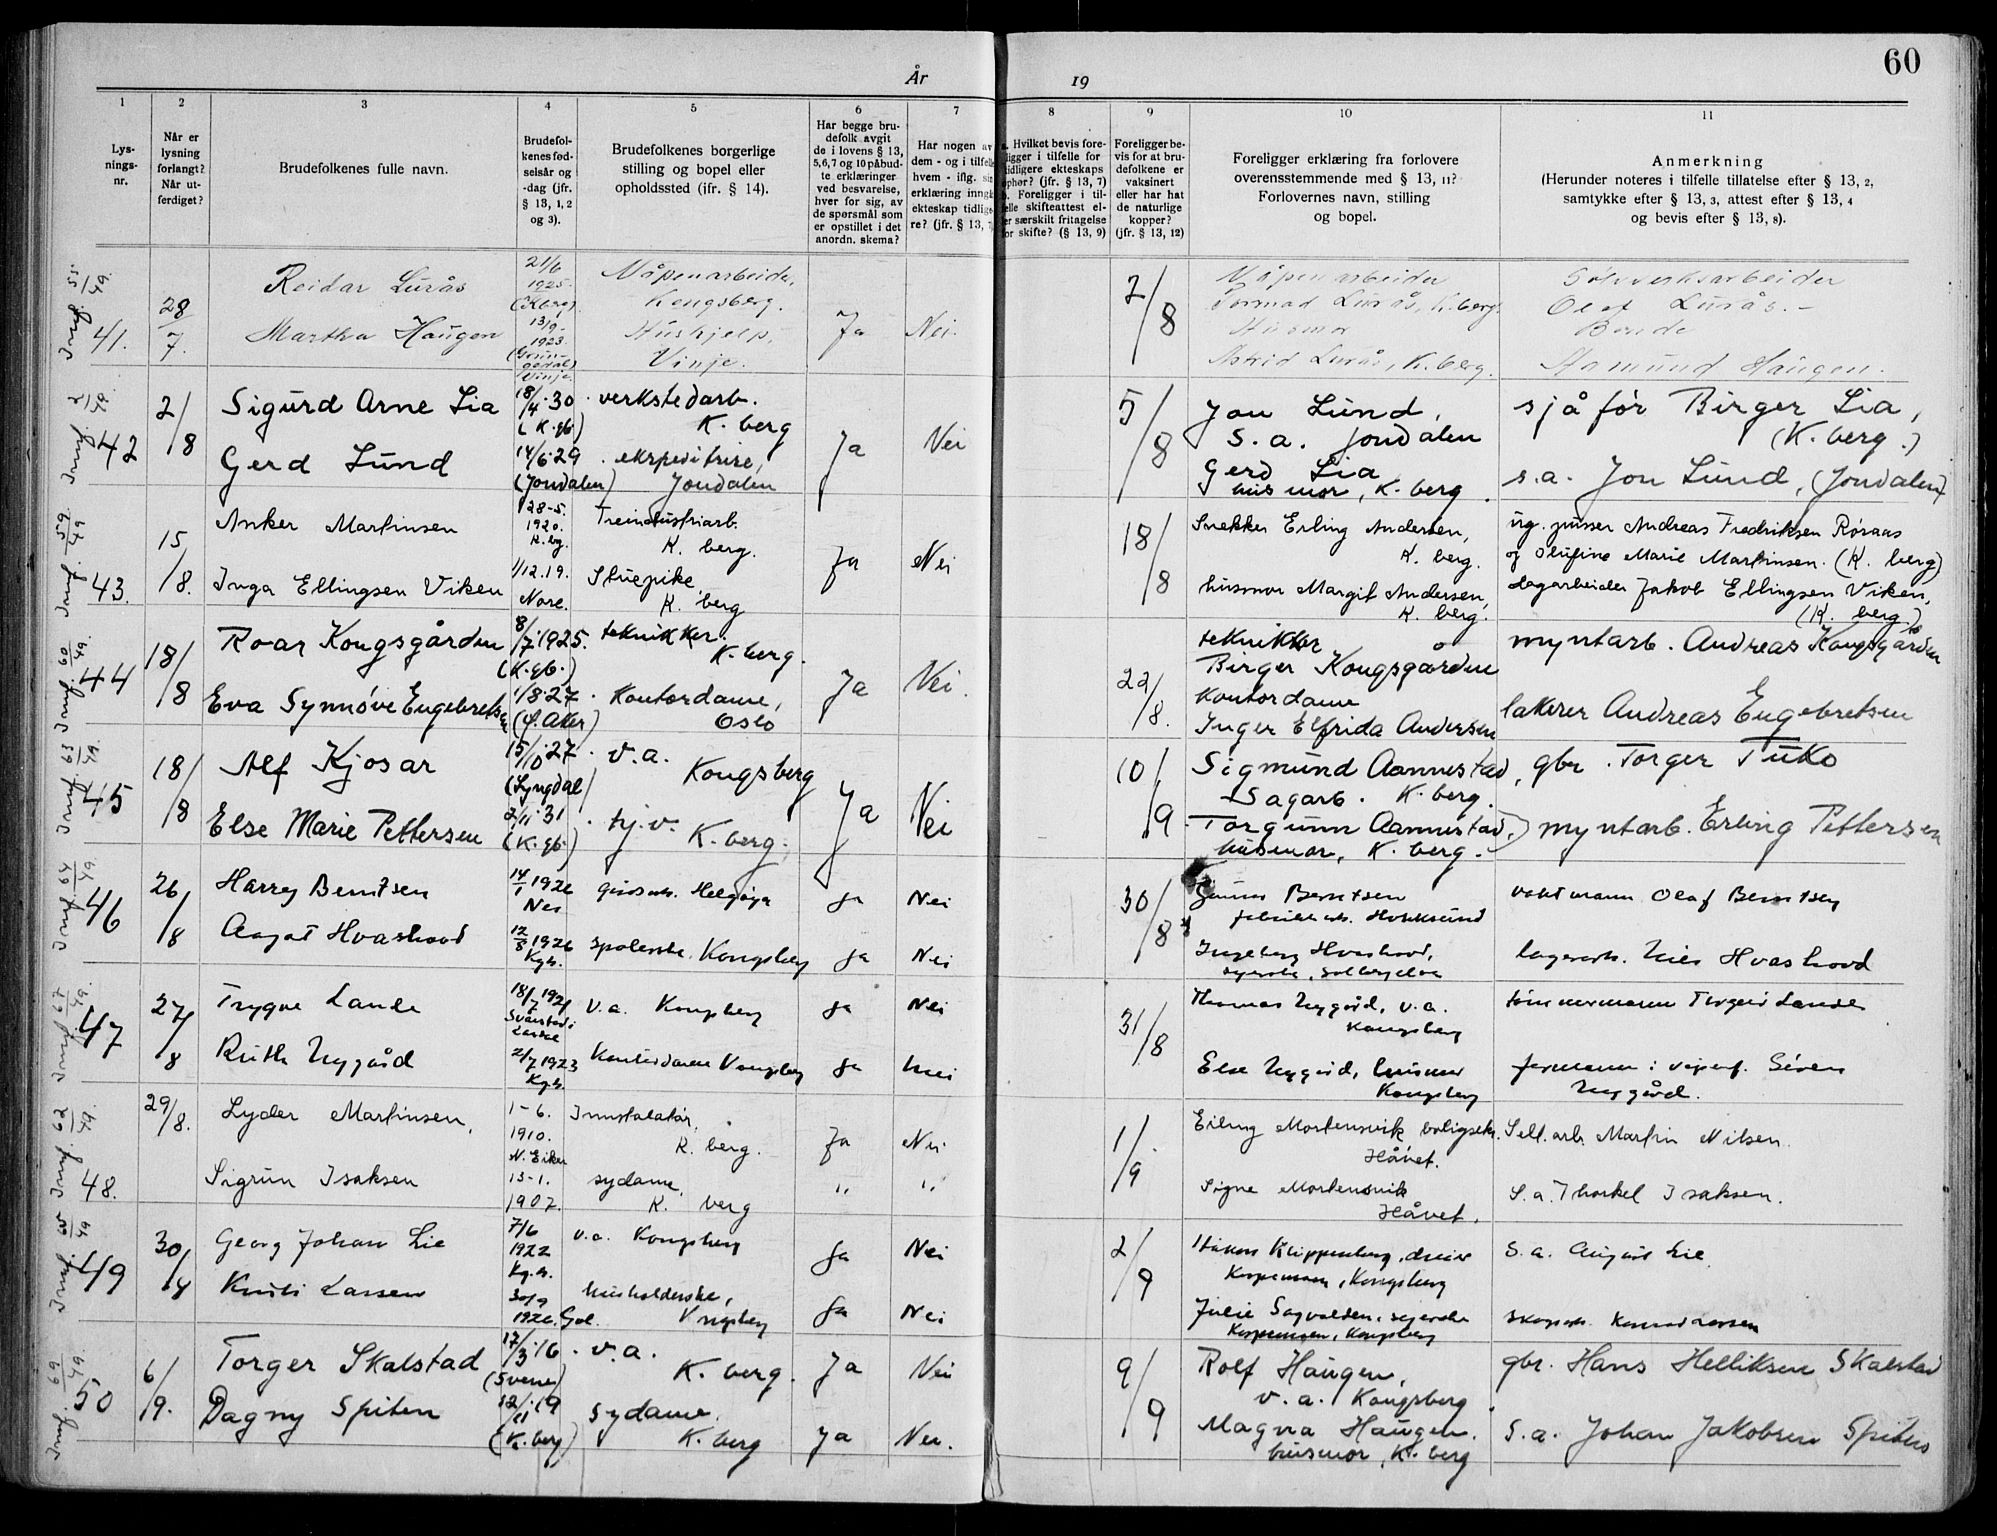 60
År
19
1
Lys-
nings-
nr.
2
Når er
lysning
forlangt?
Når ut-
ferdiget?
3
Brudefolkenes fulle navn.
4
Brudefol-
kenes fød-
selsår og
-dag (jfr.
§ 13, 1, 2
og 3).
5
Brudefolkenes borgerlige
stilling og bopel eller
opholdssted (ifr. § 14).
6
Har begge bru-
defolk avgit
de i lovens § 13,
5,6,7 og 10 påbud-
te erklæringer
ved besvarelse,
hver for sig, av
de spørsmål som
er opstillet i det
anordn. skema?
7
Har nogen av
dem - og i tilfelle
hvem - iflg. sin
erklæring inngå
ekteskap tidlige-
re? (jfr. § 13, 7
8
a. Hvilket bevis fore-
ligger i tilfelle for
tidligere ekteskaps
ophør? (jfr. § 13, 7)
b. Foreligger i til-
felle skifteattest el-
ler særskilt fritagelse
for skifte? (§ 13, 9)
9
Foreligger be-
vis for at bru-
defolkene er
vaksinert
eller har hat
de naturlige
kopper?
(jfr. § 13, 12)
10
Foreligger erklæring fra forlovere
overensstemmende med § 13, 11?
Forlovernes navn, stilling
og bopel.
11
Anmerkning
(Herunder noteres i tilfelle tillatelse efter § 13, 2,
samtykke efter § 13, 3, attest efter § 13, 4
og bevis efter § 13, 8).
41.
28/7.
Reidar Lurås
21/6
1925
(Kberg)
Våpenarbeider,
Kongsberg.
Martha Haugen
13/9-
1923
Vinje
Hushjelp,
Vinje.
Ja
Nei.
2/8
Våpenarbeider
Tormod Lurås, K.berg.
Husmor
Astrid Lurås, K.berg.
Sølvverksarbeider
Olaf Lurås.-
Bonde
Aamund Haugen.
42
2/8
Sigurd Arne Lia
18/4.30
(K.gb.)
verkstedarb.
K. berg
Gerd Lund
14/6.29
(Jondalen)
ekspeditrise,
Jondalen
Ja
Nei
5/8
Jon Lund,
s.a. Jondalen
Gerd Lia
husmor, K. berg.
sjåfør Birger Lia,
(K. berg.)
s.a. Jon Lund, (Jondalen)
43.
15/8.
Anker Martinsen
28-5.
1920.
K. bg.
Treindustriarb.
K. berg.
Inga Ellingsen Viken
1/12.19.
Nore.
Stuepike
K. berg
Ja
Nei
18/8
Snekker Erling Andersen,
K. berg.
husmor Margit Andersen,
K. berg.
ug. pusser Andreas Fredriksen Røraas
og Olufine Marie Martinsen. (K. berg)
dagarbeider Jakob Ellingsen Viken,
(K. berg)
44
18/8
Roar Kongsgården
8/7.1925.
(K.gb.)
tekniker.
K. berg.
Eva Synnøve Engebretsen
1/8.27
(V. Aker)
Kontordame,
Oslo
Ja
Nei.
22/8.
tekniker
Birger Kongsgården
Kontordame
Inger Elfrida Andersen
myntarb. Andreas Kongsgården
lakerer Andreas Engebretsen
45
18/8
Alf Kjosar
15/10.27
(Lyngdal)
v.a.
Kongsberg
Else Marie Pettersen
2/11.31
(K.gb)
tj.v.
K. berg.
Ja
Nei
10/9
Sigmund Aannestad,
Sagarb. K. berg.
Torgunn Aannestad,
husmor, K. berg.
gbr. Torger Tuko
myntarb. Erling Pettersen
46
26/8
Harry Berntsen
14/1 1926
Nes
Helgøya
Aagot Hvashovd
12/8 1926
Kgb.
Kongsberg
Ja
Nei
Ja
Nei
30/8
Gunnar Berntsen
fabrikkarb. Hokksund
Ingeborg Hvashovd,
syerske, Solbergelva
vaktmann Olaf Berntsen
lagerarb. Nils Hvashovd
47
27/8
Trygve Lande
18/7 1921
Svarstad i
Lardal
v.a. Kongsberg
Ruth Nygård
2/7 1923
Kgb.
Kontordame Kongsberg
Ja
Nei
Ja
Nei
31/8
Thomas Nygård, v.a.
Kongsberg
Else Nygård, husmor
Kongsberg
tømmermann Torgeir Lande
formann i våpenf. Søren
Nygård.
48.
29/8.
Lyder Martinsen,
1-6.
1910.
N. Eiker
Innstalatør,
K. berg.
Sigrun Isaksen
13-1.
1907.
sydame,
K. berg
Ja
Nei
"
"
1/9
Eiling Mortensvik boligsekr.
Håvet.
Signe Mortensvik
Håvet.
Self.arb. Martin Nilsen.
S.a. Thorkel Isaksen.
49
30/8
Georg Johan Lie
7/6
1922
Kg.b.
v.a. Kongsberg
Larsen
30/9
1920. Gol.
husholderske,
Kongsberg
Ja
Nei
Ja
Nei
2/9
Håkon Klippenberg, dreier
Korpemoen, Kongsberg
Julie Sagvolden, syerske
Korpemoen, Kongsberg
S.a. August Lie
skogsarb. Konrad Larsen
50
6/9.
Torger Skalstad
17/3.16
(Svene)
v.a.
K. berg.
Dagny Spiten
12/11.19
(K. berg)
sydame.
K. berg
Ja
Nei
Ja
Nei.
9/9
Rolf Haugen,
v.a. Kongsberg.
Magna Haugen.
husmor, K. berg
gbr. Hans Helliksen Skalstad
S.a. Johan Jakobsen Spiten